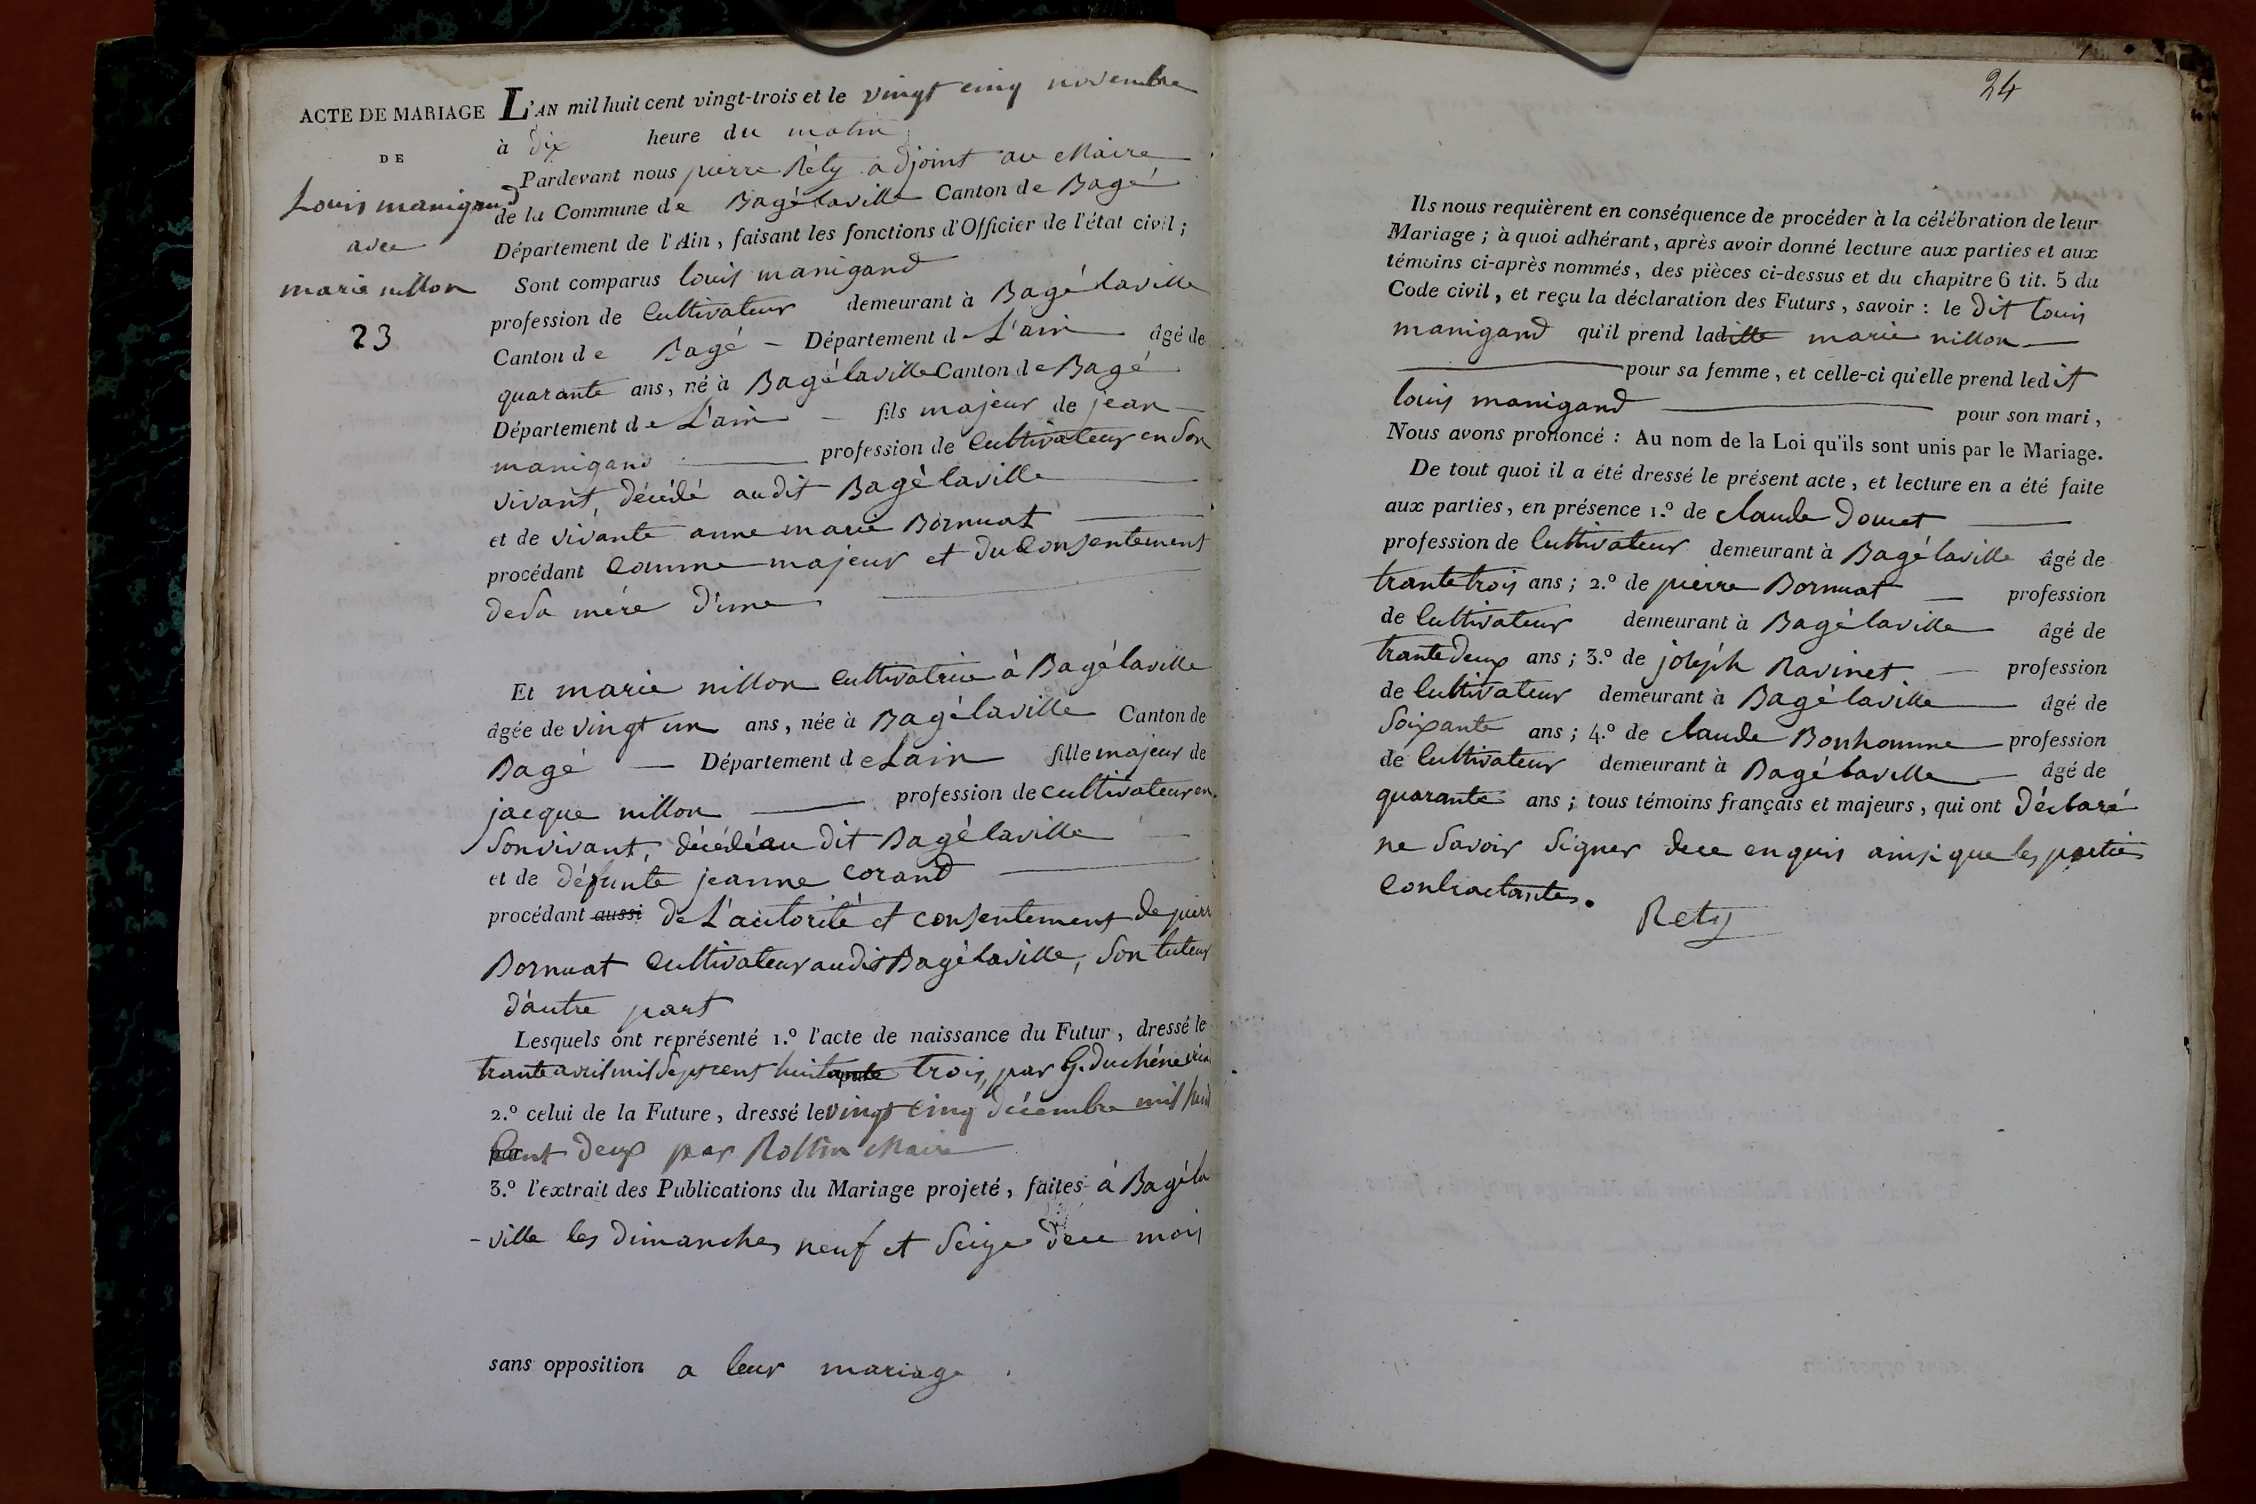 ACTE DE MARIAGE
DE
Louis manigand
avec
marie nillon
23
L'AN mil huit cent vingt-trois et le vingt cinq novembre
à dix heure du matin
Pardevant nous pierre Réty adjoint au Maire
de la Commune de Bagélaville Canton de Bagé
Département de l'Ain, faisant les fonctions d'Officier de l'état civil ;
Sont comparus louis manigand
profession de Cultivateur demeurant à Bagélaville
Canton de Bagé — Département de L'ain âgé de
quarante ans, né à Bagélaville Canton de Bagé
Département de L'ain — fils majeur de jean
manigand profession de Cultivateur en Son
vivant, décédé audit Bagélaville
et de vivante anne marie Bornuat
procédant Comme majeur et du Consentement
de Sa mére d'une
Et marie nillon Cultivatrice à Bagélaville
âgée de vingt un ans, née à Bagélaville Canton de
Bagé — Département de Lain fille majeur de
jacque nillon profession de cultivateur en
Son vivant, décédé au dit Bagélaville
et de défunte jeanne corand
procédant aussi de L'autorité et consentement de pierr
Bornuat Cultivateur audit Bagélaville, Son tuteur
d'autre part
Lesquels ont représenté 1.º l'acte de naissance du Futur, dressé le
trante avril mil Sept cent huitante trois, par G. Duchéne
2.º celui de la Future, dressé le vingt Cinq décembre mil huit
Cent deux par Rollin Maire
3.º l'extrait des Publications du Mariage projeté, faites à Bagéla
-ville les dimanches neuf et Seize dece mois
sans opposition a leur mariage
24
Ils nous requièrent en conséquence de procéder à la célébration de leur
Mariage ; à quoi adhérant, après avoir donné lecture aux parties et aux
témoins ci-après nommés, des pièces ci-dessus et du chapitre 6 tit. 5 du
Code civil, et reçu la déclaration des Futurs, savoir : le dit louis
manigand qu'il prend laditte marie nillon —
pour sa femme, et celle-ci qu'elle prend ledit
louis manigand pour son mari,
Nous avons prononcé : Au nom de la Loi qu'ils sont unis par le Mariage.
De tout quoi il a été dressé le présent acte, et lecture en a été faite
aux parties, en présence 1.º de claude Doucet
profession de Cultivateur demeurant à Bagélaville âgé de
trante trois ans ; 2.º de pierre Bornuat — profession
de Cultivateur demeurant à Bagélaville âgé de
trante deux ans ; 3.º de joseph Ravinet — profession
de Cultivateur demeurant à Bagélaville âgé de
Soixante ans ; 4.º de claude Bonhomme profession
de Cultivateur demeurant à Bagélaville — âgé de
quarante ans ; tous témoins français et majeurs, qui ont déclaré
ne Savoir Signer dece enquis ainsi que les parties
Contractantes.
Rety